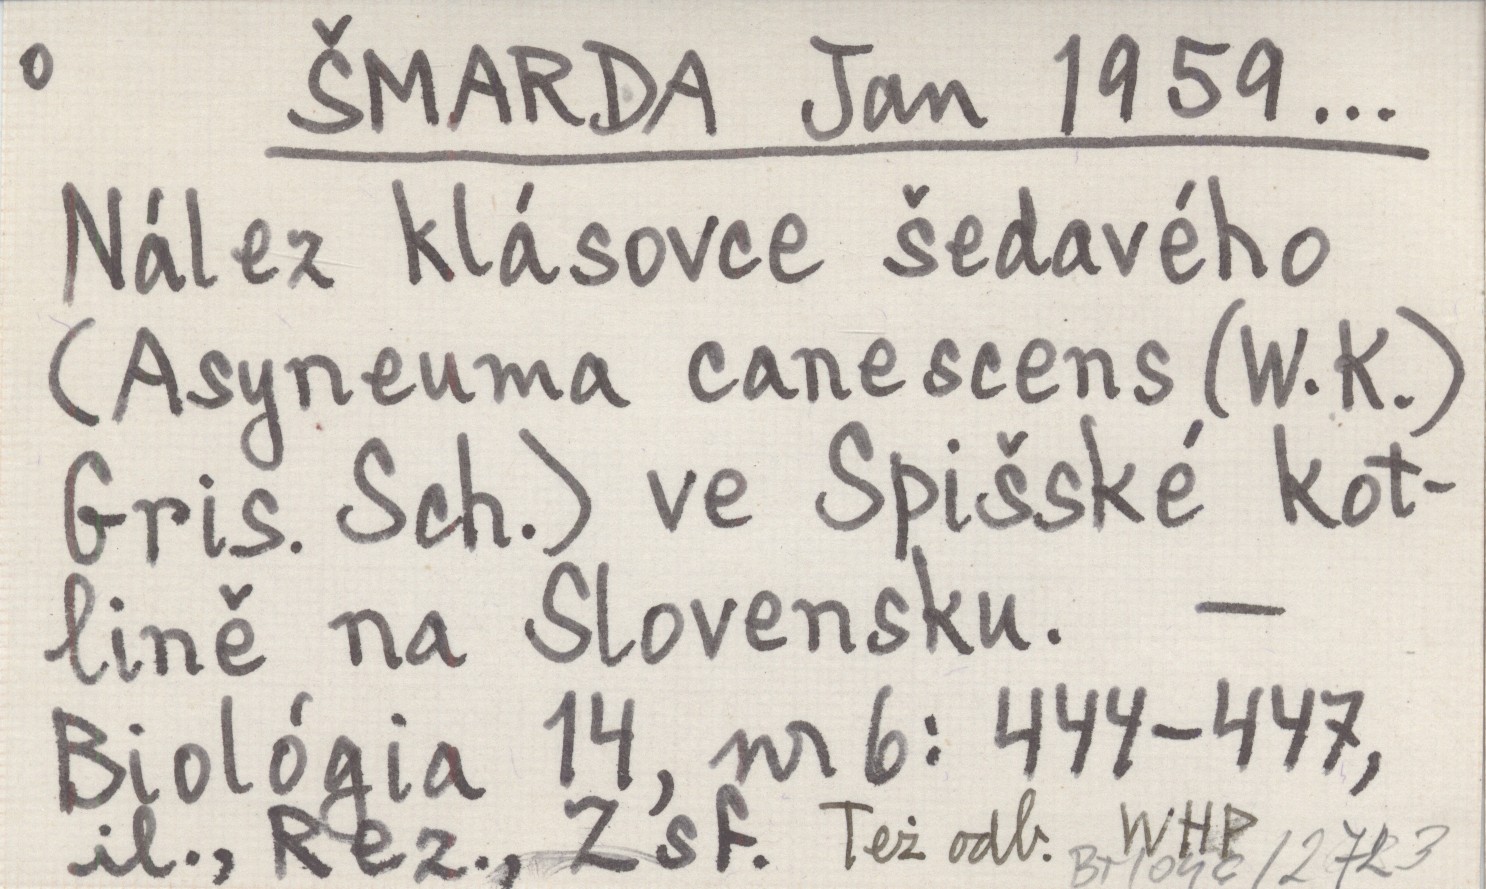 o ŠMARDA Jan 1959...
Nález klásovce šedavého
(Asyneuma canescens (W.K.)
Gris. Sch.) ve Spišské kot-
lině na Slovensku. —
Biológia 14, nr 6: 444-447,
il., Rez., Zsf. Też odb. WHP